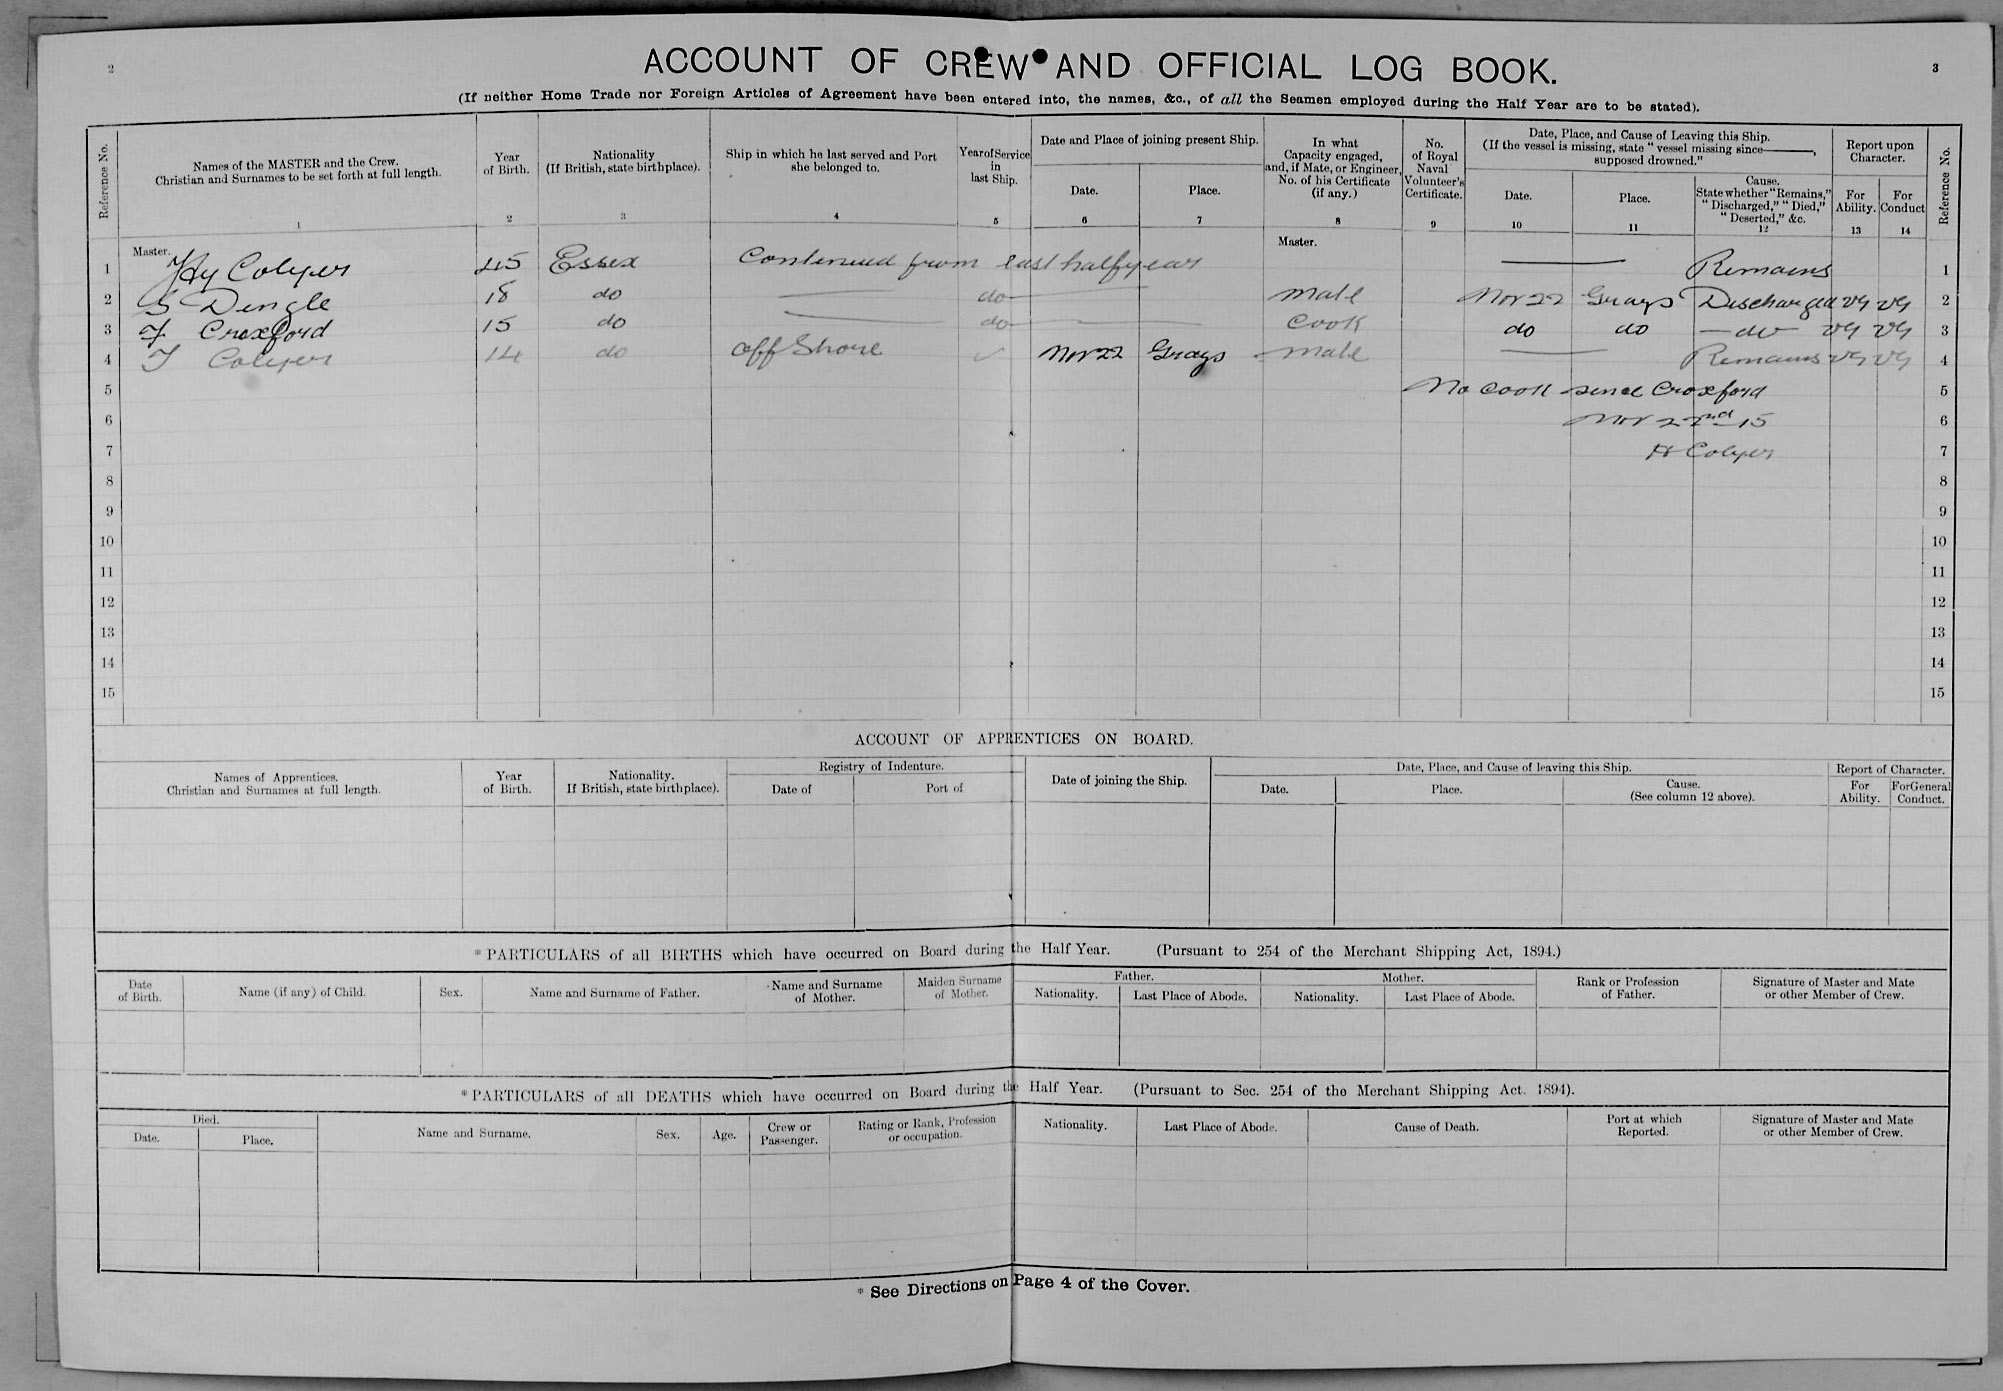 2
3
ACCOUNT OF CREW AND OFFICIAL LOG BOOK.
(If neither Home Trade nor Foreign Articles of Agreement have been entered into, the names, &c., of all the Seamen employed during the Half Year are to be stated).
Reference No.
Names of the MASTER and the Crew.
Christian and Surnames to be set forth at full length.
1
Year
of Birth.
2
Nationality
(If British, state birthplace).
3
Ship in which he last served and Port
she belonged to.
4
Year of Service
in
last Ship.
5
Date and Place of joining present Ship.
Date.
6
Place.
7
In what
Capacity engaged,
and, if Mate, or Engineer,
No. of his Certificate
(if any.)
8
No.
of Royal
Naval
Volunteer's
Certificate.
9
Date, Place, and Cause of Leaving this Ship.
(If the vessel is missing, state "vessel missing since———,
supposed drowned."
Date.
10
Place.
11
Cause.
State whether "Remains,"
"Discharged," "Died,"
"Deserted," &c.
12
Report upon
Character.
For
Ability.
13
For
Conduct
14
Reference No.
1 Master. Hy Colyer 45 Essex Continued from last half year Master. — Remains 1
2 S Dingle 18 do — do — mate Nov 22 Grays Discharged VG VG 2
3 F Croxford 15 do — do — Cook do do — do — VG VG 3
4 T Colyer 14 do off Shore ✓ Nov 22 Grays mate — Remains VG VG 4
5 No Cook since Croxford 5
6 Nov 22nd 15 6
7 H Colyer 7
8 8
9 9
10 10
11 11
12 12
13 13
14 14
15 15
ACCOUNT OF APPRENTICES ON BOARD.
Names of Apprentices.
Christian and Surnames at full length.
Year
of Birth.
Nationality.
If British, state birthplace).
Registry of Indenture.
Date of
Port of
Date of joining the Ship.
Date, Place, and Cause of leaving this Ship.
Date.
Place.
Cause.
(See column 12 above).
Report of Character.
For
Ability.
For General
Conduct.
* PARTICULARS of all BIRTHS which have occurred on Board during the Half Year. (Pursuant to 254 of the Merchant Shipping Act, 1894.)
Date
of Birth.
Name (if any) of Child.
Sex.
Name and Surname of Father.
Name and Surname
of Mother.
Maiden Surname
of Mother.
Father.
Nationality.
Last Place of Abode.
Mother.
Nationality.
Last Place of Abode.
Rank or Profession
of Father.
Signature of Master and Mate
or other Member of Crew.
* PARTICULARS of all DEATHS which have occurred on Board during the Half Year. (Pursuant to Sec. 254 of the Merchant Shipping Act. 1894).
Died.
Date.
Place.
Name and Surname.
Sex.
Age.
Crew or
Passenger.
Rating or Rank, Profession
or occupation.
Nationality.
Last Place of Abode.
Cause of Death.
Port at which
Reported.
Signature of Master and Mate
or other Member of Crew.
* See Directions on Page 4 of the Cover.